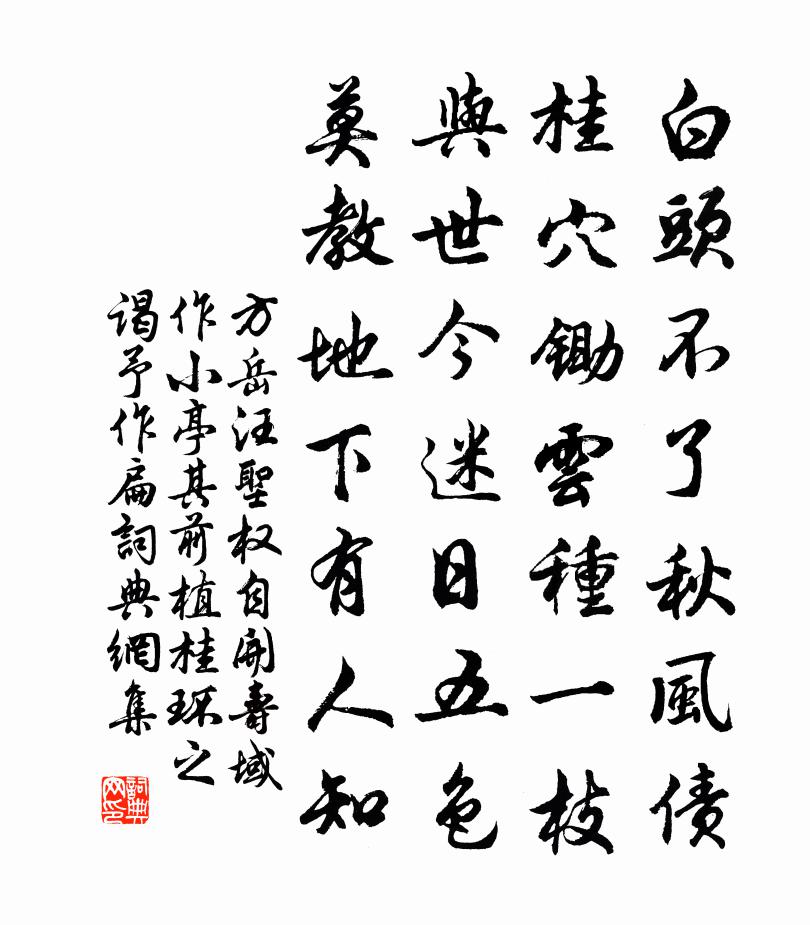 白頭不了秋風債
桂穴鋤雲種一枝
與世今迷日五色
莫教地下有人知
方岳汪聖权自開壽域
作小亭其前植桂环之
谒予作扁詞典網集
詞典网印